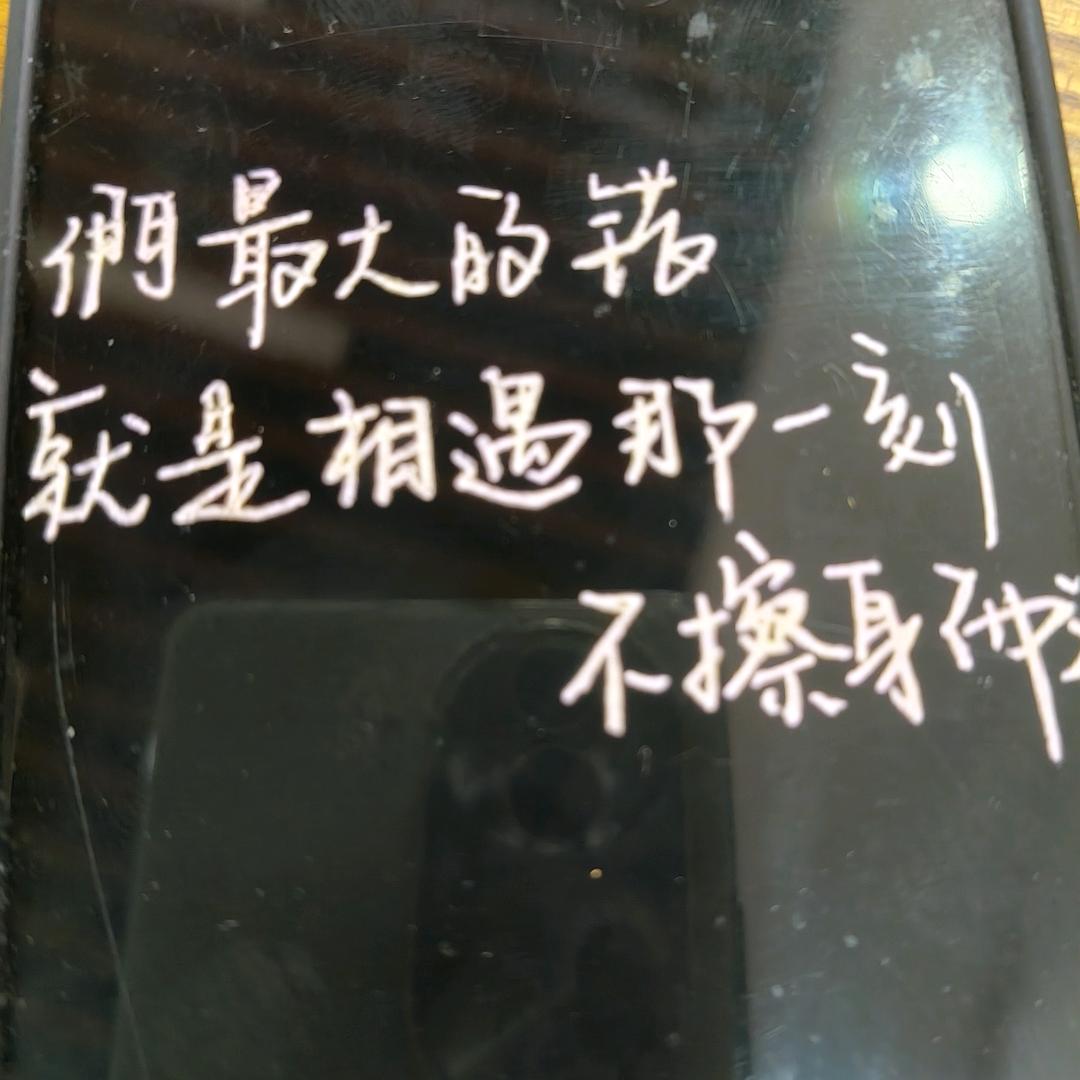 們最大的錯
就是相遇那一刻
不擦身